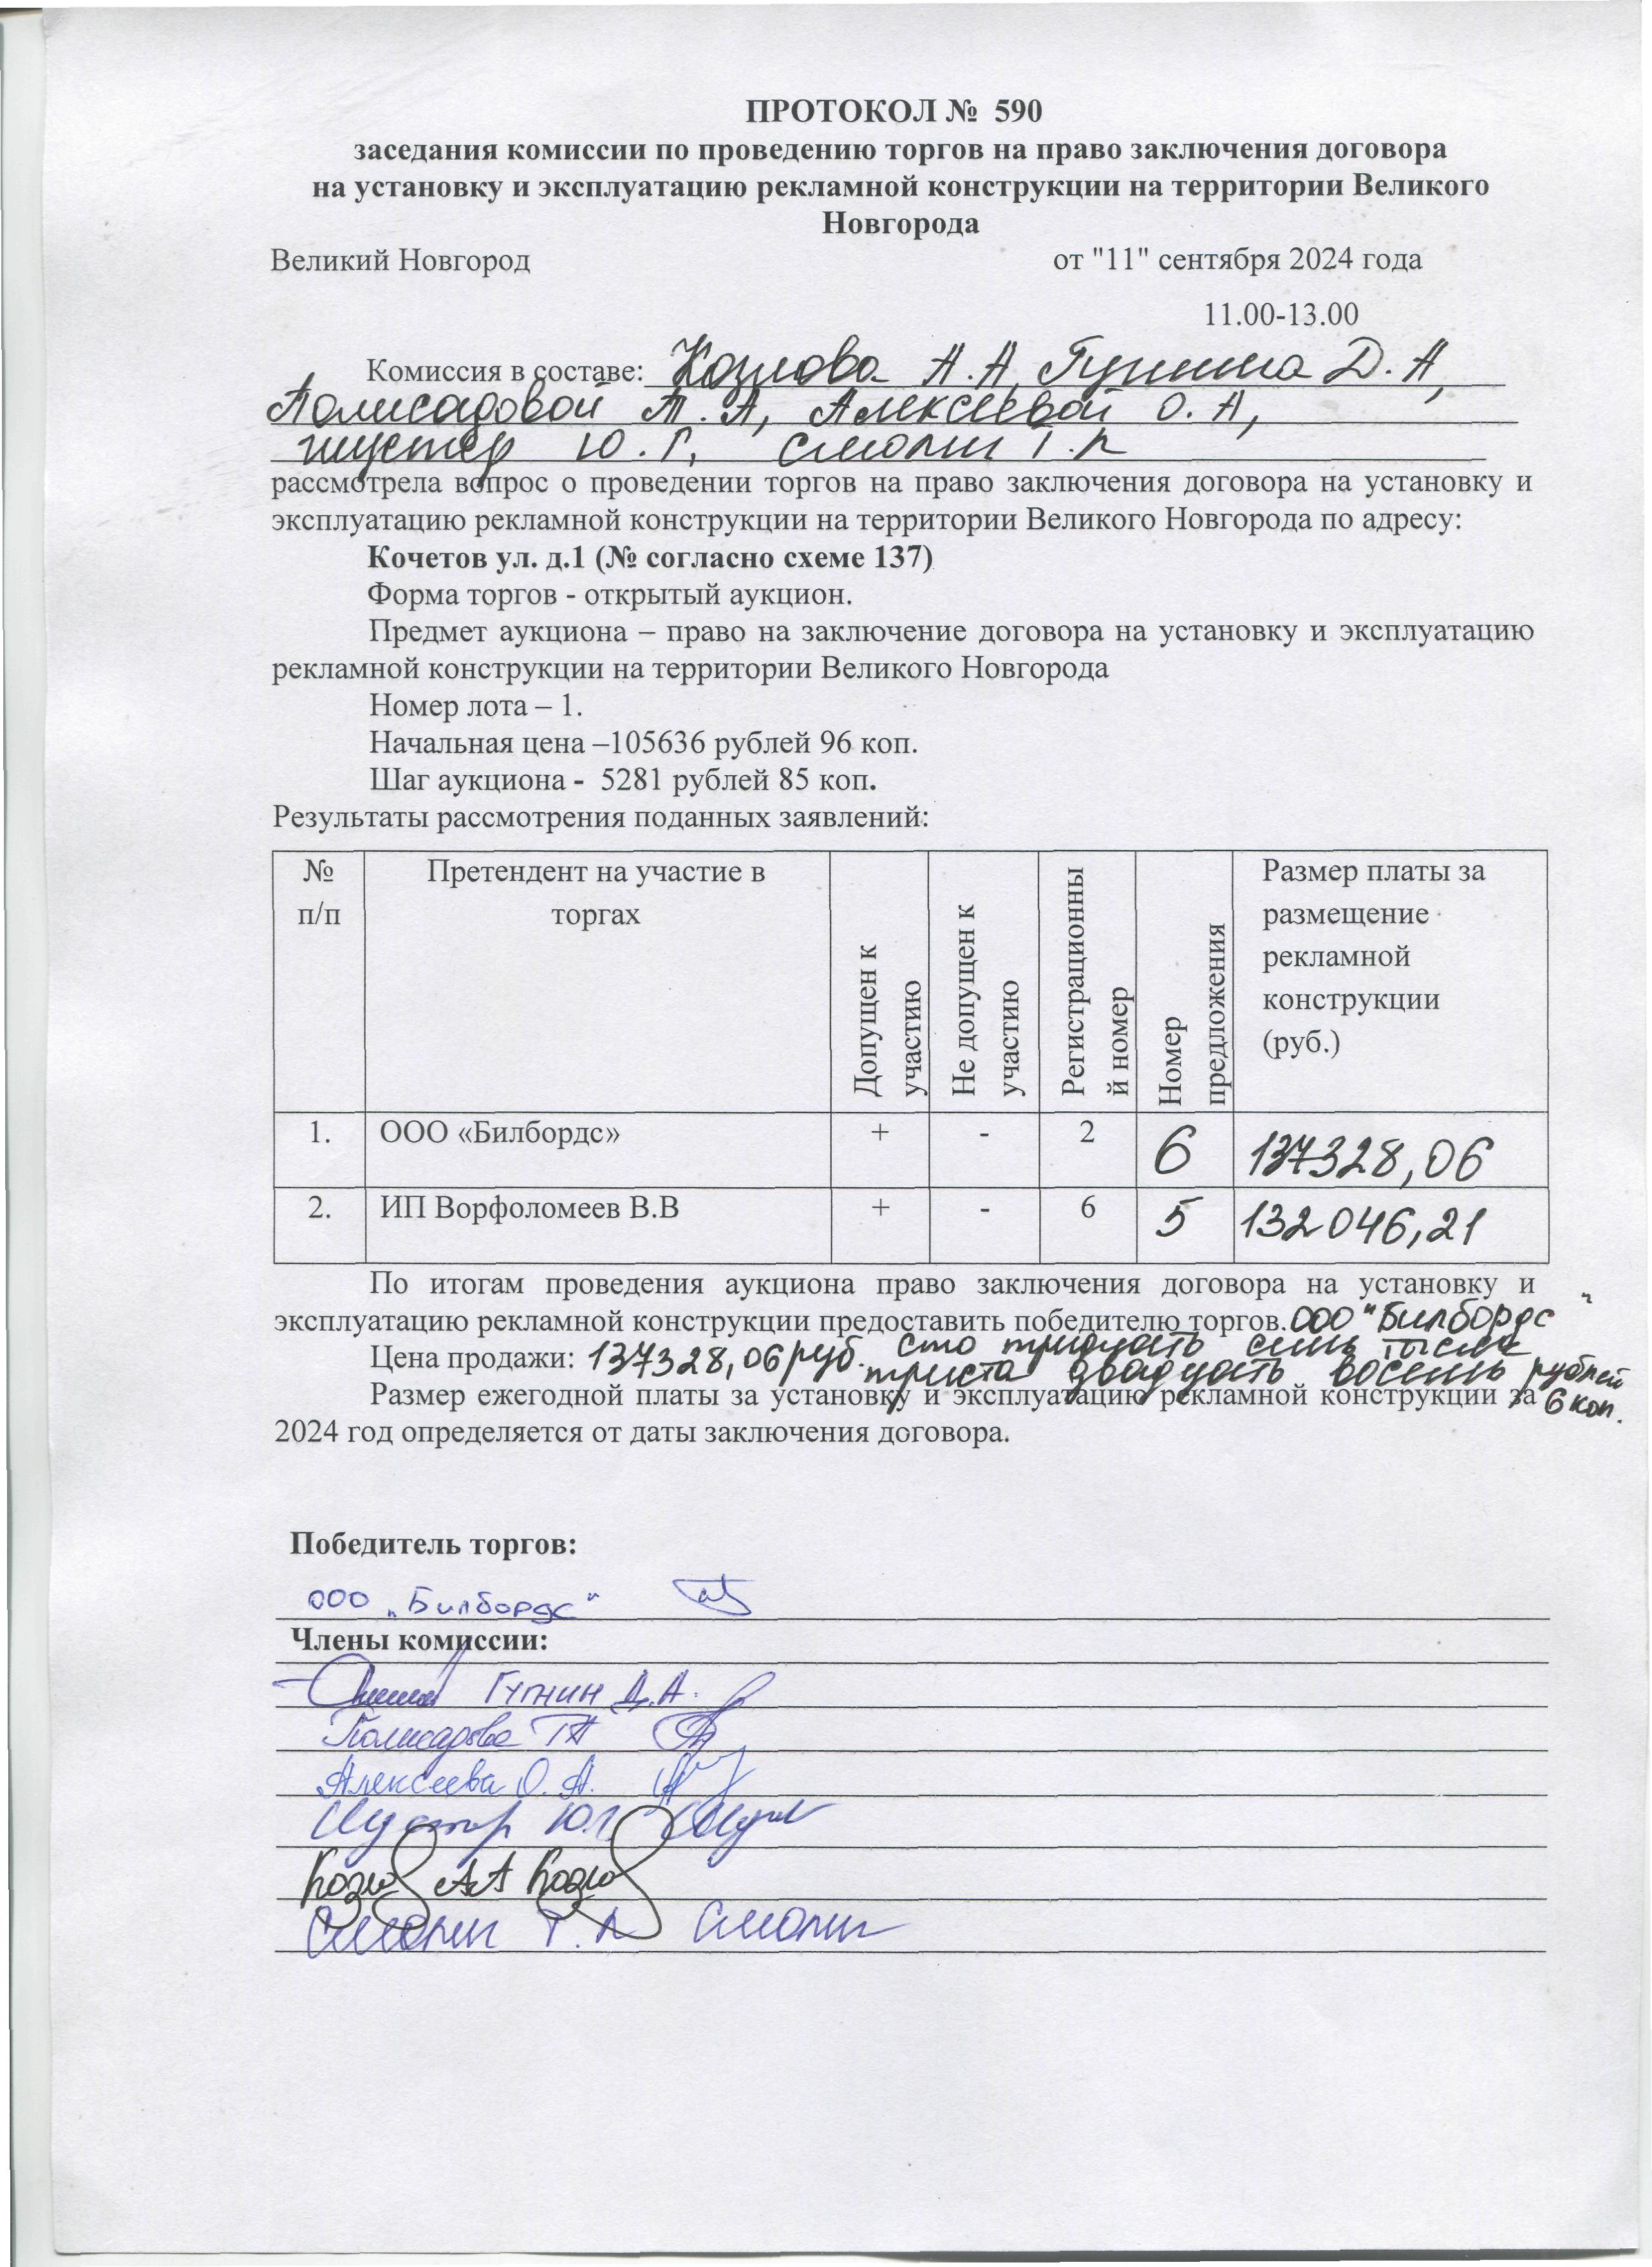 ПРОТОКОЛ № 590
заседания комиссии по проведению торгов на право заключения договора
на установку и эксплуатацию рекламной конструкции на территории Великого
Новгорода
Великий Новгород от "11" сентября 2024 года
11.00-13.00
Комиссия в составе: Козлова А.А, Гунина Д.А,
Полисадовой Т.А, Алексеевой О.А,
Шустер Ю.Г, Смолин Г.Л
рассмотрела вопрос о проведении торгов на право заключения договора на установку и
эксплуатацию рекламной конструкции на территории Великого Новгорода по адресу:
Кочетов ул. д.1 (№ согласно схеме 137)
Форма торгов - открытый аукцион.
Предмет аукциона – право на заключение договора на установку и эксплуатацию
рекламной конструкции на территории Великого Новгорода
Номер лота – 1.
Начальная цена –105636 рублей 96 коп.
Шаг аукциона - 5281 рублей 85 коп.
Результаты рассмотрения поданных заявлений:
№ п/п
Претендент на участие в
торгах
Допущен к
участию
Не допущен к
участию
Регистрационны
й номер
Номер
предложения
Размер платы за
размещение
рекламной
конструкции
(руб.)
1. ООО «Билбордс» + - 2 6 137328,06
2. ИП Ворфоломеев В.В + - 6 5 132046,21
По итогам проведения аукциона право заключения договора на установку и
эксплуатацию рекламной конструкции предоставить победителю торгов. ООО "Билбордс"
Цена продажи: 137328,06 руб. сто тридцать семь тысяч
триста двадцать восемь рублей
6 коп.
Размер ежегодной платы за установку и эксплуатацию рекламной конструкции за
2024 год определяется от даты заключения договора.
Победитель торгов:
ООО „Билбордс"
Члены комиссии:
Гунин Д.А.
Полисадова ТА
Алексеева О.А.
Шустер Ю.Г.
Козлов АА Козлов
Смолин Г.Л Смолин